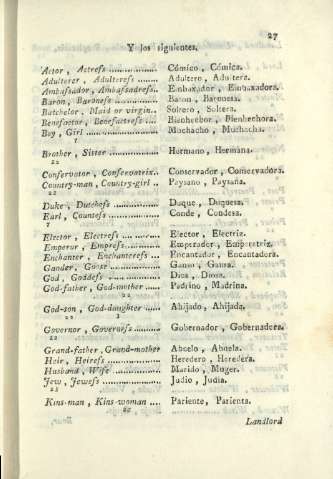 27
Y los siguientes.
Actor, Actreſs ................. Cómico, Cómica.
Adulterer, Adultereſs ....... Adultero, Adultera.
Ambaſsador, Ambaſsadreſs.. Embaxador, Embaxadora.
Baron, Baroneſs ............... Baron, Baronesa.
Batchelor, Maid or virgin.. Soltero, Soltera.
Benefactor, Benefactreſs .... Bienhechor, Bienhechora.
Boy, Girl ..................... Muchacho, Muchacha.
Brother, Sister ............... Hermano, Hermana.
22
Conſervator, Conſervatrix.. Conservador, Conservadora.
Country-man, Country-girl .. Paysano, Paysana.
22
Duke, Dutcheſs ................ Duque, Duquesa.
Earl, Counteſs ............... Conde, Condesa.
Elector, Electreſs ............ Elector, Electriz.
Emperor, Empreſs ............ Emperador, Emperatriz.
Enchanter, Enchantereſs ... Encantador, Encantadora.
Gander, Goose ................ Ganso, Gansa.
God, Goddeſs ................ Dios, Diosa.
God-father, God-mother ...... Padrino, Madrina.
22
God-son, God-daughter ..... Ahijado, Ahijada.
22
Governor, Governeſs ......... Gobernador, Gobernadora.
22
Grand-father, Grand-mother Abuelo, Abuela.
Heir, Heireſs ................. Heredero, Heredera.
Husband, Wife ............... Marido, Muger.
Jew, Jeweſs .................. Judio, Judia.
Kins-man, Kins-woman .... Pariente, Parienta.
22
Landlord